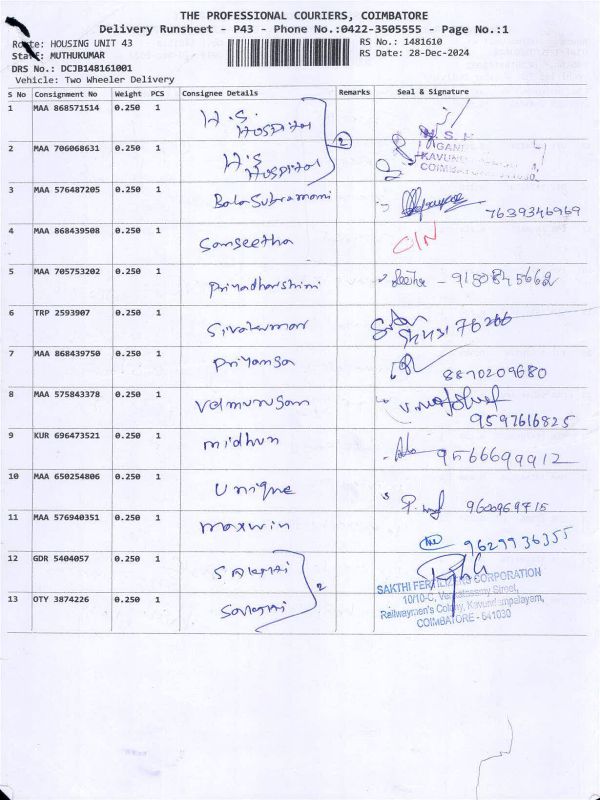 THE PROFESSIONAL COURIERS, COIMBATORE
Delivery Runsheet - P43 - Phone No.:0422-3505555 - Page No.:1
Route: HOUSING UNIT 43
RS No.: 1481610
Staff: MUTHUKUMAR
RS Date: 28-Dec-2024
DRS No.: DCJB148161001
Vehicle: Two Wheeler Delivery
S No Consignment No Weight PCS Consignee Details Remarks Seal & Signature
1 MAA 868571514 0.250 1 H.S. Hospital
2 MAA 706068631 0.250 1 H.S Hospital 2
3 MAA 576487205 0.250 1 BalaSubramani 7639346969
4 MAA 868439508 0.250 1 Sangeetha C/N
5 MAA 705753202 0.250 1 Priyadharshini
6 TRP 2593907 0.250 1 Sivakumar
7 MAA 868439750 0.250 1 Priyansa 8870209680
8 MAA 575843378 0.250 1 Velmurugan
9597616825
9 KUR 696473521 0.250 1 midhun 9566699912
10 MAA 650254806 0.250 1 Unique
11 MAA 576940351 0.250 1 maxwin 9629936355
12 GDR 5404057 0.250 1 Sakthi
13 OTY 3874226 0.250 1 2
SAKTHI FERTILIZERS CORPORATION
10/10-C, Street,
Railwaymen's Colony, Kavundampalayam,
COIMBATORE - 641030